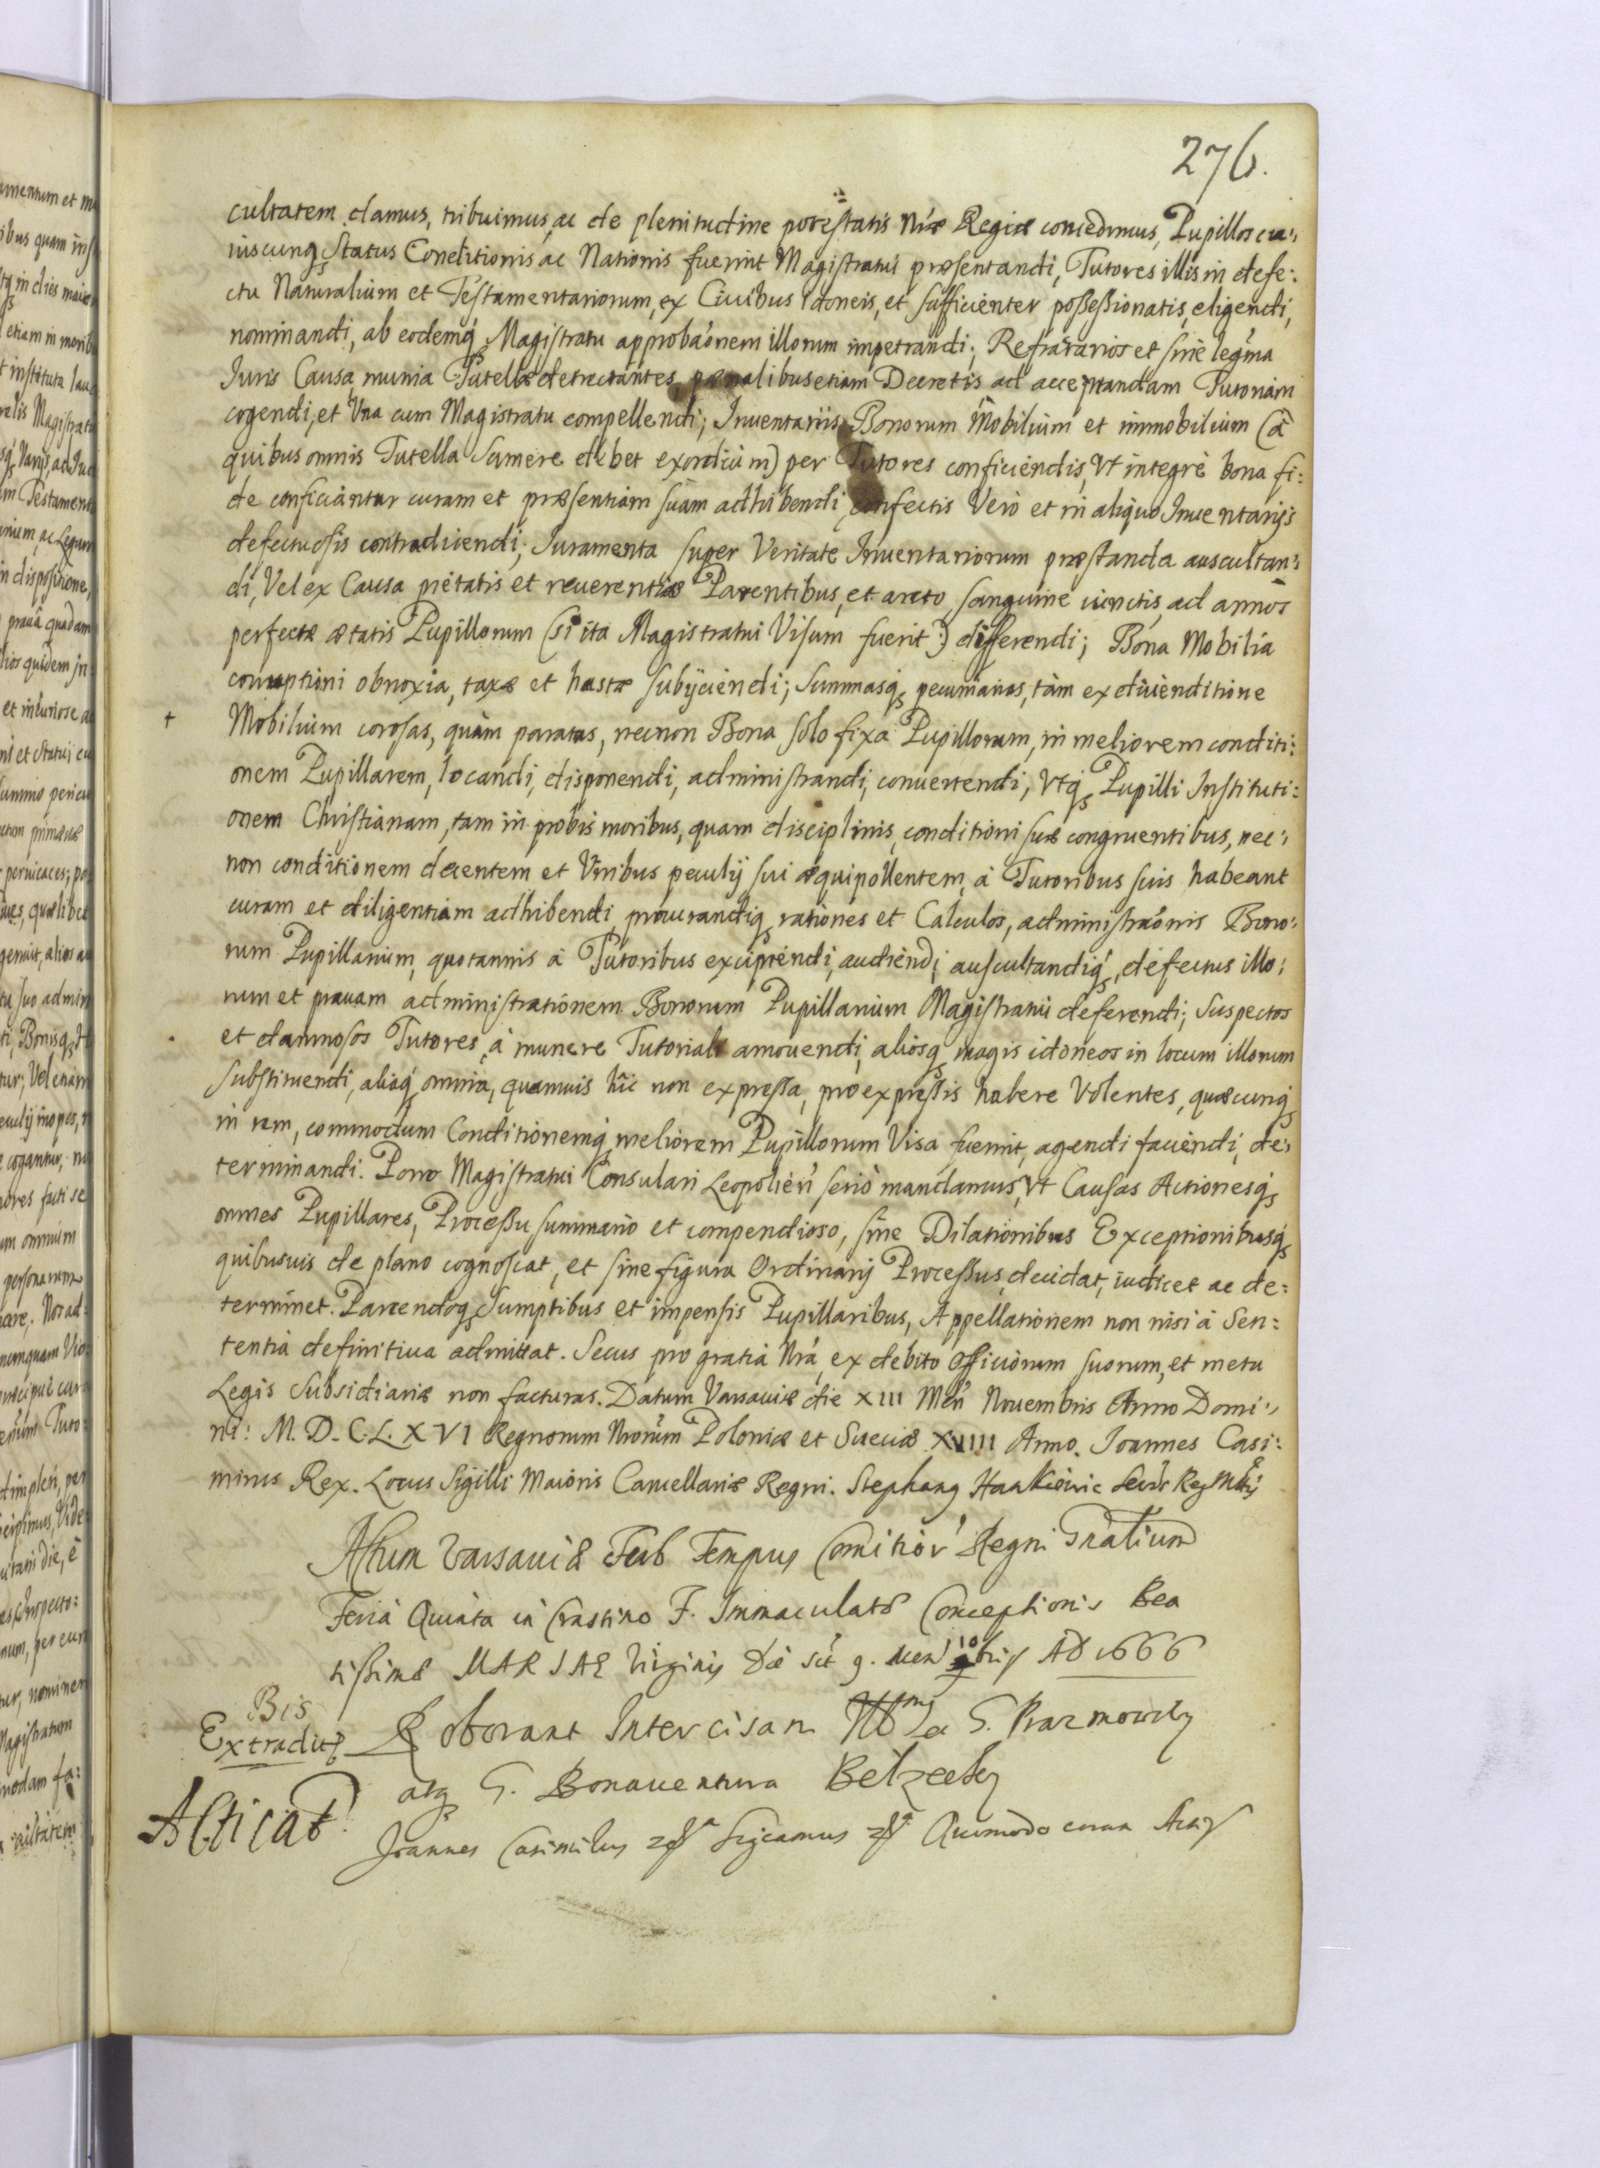 276.
cultatem damus, tribuimus, ac de plenitudine potestatis Nræ Regiæ concedimus, Pupillos cu-
iuscunq Status Conditionis ac Nationis fuerint Magistratui præsentandi, Tutores illis in defe:
ctu Naturalium et Testamentariorum, ex Ciuibus idoneis, et sufficienter possessionatis, eligendi,
nominandi, ab eodemq Magistratu approbaonem illorum impetrandi; Refratarios et sine legma
Juris Causa munia Tutellæ detrectantes pænalibus etiam Decretis ad acceptandam Tutoriam
cogendi, et Vna cum Magistratu compellendi; Inventariis Bonorum Mobilium et immobilium (à
quibus omnis Tutella Sumere debet exordium) per Tutores conficiendis, Vt integrè bona fi:
de conficiantur curam et præsentiam suam adhibendi, confectis Verò et in aliquo Inuentarijs
defectuosis contradicendi; Iuramenta super Veritate Inuentariorum præstanda auscultan-
di, Vel ex Causa pietatis et reuerentiæ Parentibus, et arcto sanguine iunctis, ad annos
perfectæ ætatis Pupillorum (si ita Magistratui Visum fuerit) differendi; Bona Mobilia
corruptioni obnoxia, taxæ et hastæ subijciendi; Summasq pecuniarias, tàm ex diuenditione
+ Mobilium corosas, quàm paratas, necnon Bona solo fixa Pupillorum, in meliorem conditi:
onem Pupillarem, locandi, disponendi, administrandi, conuertendi, Vtq Pupilli Instituti:
onem Christianam, tam in probis moribus, quam disciplinis, conditioni suæ congruentibus, nec-
non conditionem decentem et Viribus peculij sui æquipollentem, à Tutoribus suis habeant
curam et diligentiam adhibendi, procurandiq rationes et Calculos, administraonis Bono:
rum Pupillarium, quotannis à Tutoribus excipiendi, audiendi auscultandiq, defectus illo:
rum et prauam administrationem Bonorum Pupillarium Magistratui deferendi; Suspectos
et damnosos Tutores, à munere Tutoriali amouendi, aliosq magis idoneos in locum illorum
substituendi, aliaq omnia, quamuis hîc non expressa, pro expressis habere Volentes, quæcunq
in rem, commodum Conditionemq meliorem Pupillorum Visa fuerint, agendi faciendi, de-
terminandi. Porro Magistratui Consulari Leopolien seriò mandamus, Vt Causas Actionesq
omnes Pupillares, Processu summario et compendioso, sine Dilationibus Exceptionibusq
quibusuis de plano cognoscat, et sine figura Ordinarij Processus, decidat, iudicet ac de:
terminet. Parcendoq Sumptibus et impensis Pupillaribus, Appellationem non nisi à Sen:
tentia definitiua admittat. Secus pro gratia Nra, ex debito Officiorum suorum, et metu
Legis Subsidiariæ non facturas. Datum Varsauiæ die XIII Men Nouembris Anno Domi-
ni: M.D.C.L.XVI Regnorum Nrorum Poloniæ et Sueciæ XVIIII Anno. Joannes Casi:
mirus Rex. Locus Sigilli Maioris Cancellariæ Regni. Stephang Hankiewic Secrs Reg Mtis
Actum Varsauiæ sub Tempus Comitior Regni Gralium
Feria Quinta in Crastino F. Immaculatæ Conceptionis Bea
tissimæ MARIAE Virginis Die sct 9. Men 10bris AD 1666
Bis
Extradit
Roborant Intercisam G. Prazmowsky
atq G. Bonauentura Belzecky
Acticat
Joannes Casimirus Quomodo coram Actis